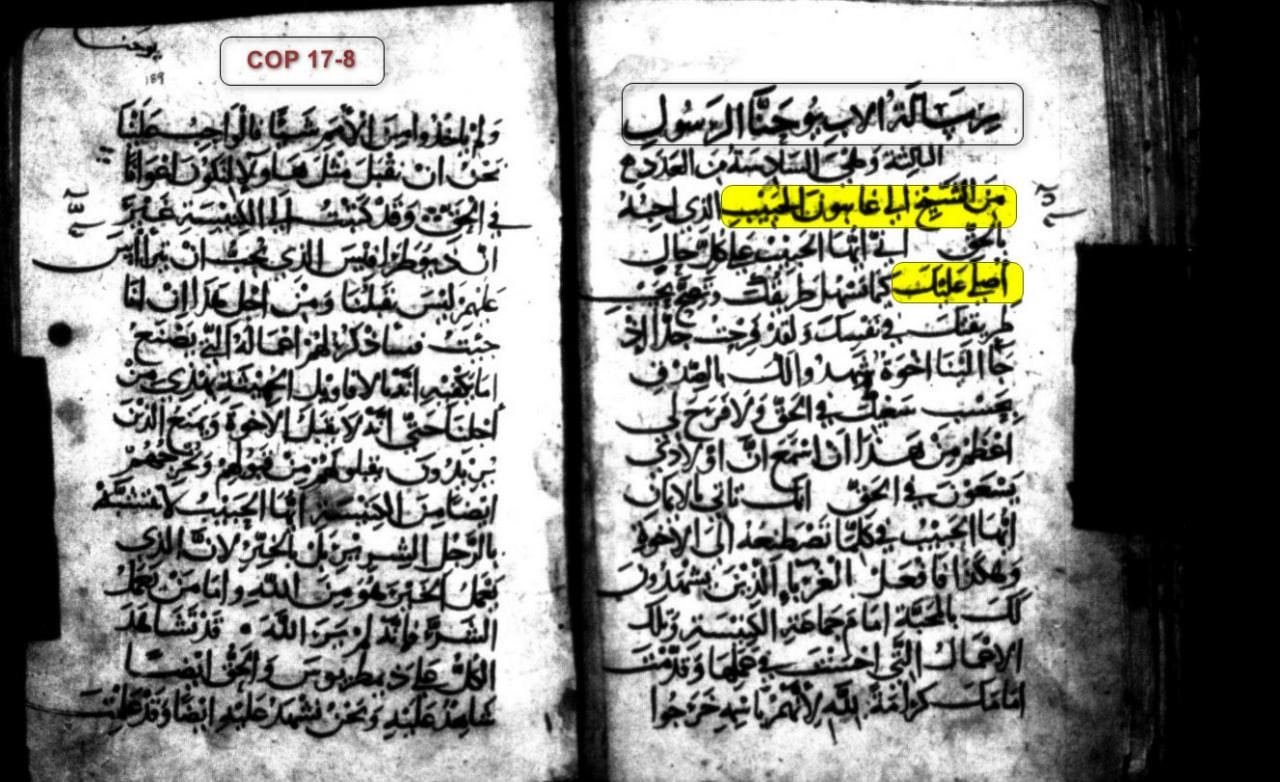 COP 17-8
رسالة الاب يوحنا الرسول
الثالثة وهي السادسة من العدد
من الشيخ الي غايوس الحبيب الذي احبه
بالحق ايها الحبيب علي كل حال
اصلي عليك كما تسهل طريقك وتصح بحسب
طريقتك في نفسك ولقد فرحت جدا اذ
جا الينا اخوة شهدوا لك بالصدق
بحسب سعيك في الحق ولا فرح لي
اعظم من هذا ان اسمع ان اولادي
يسعون في الحق انك تاتي بالايمان
ايها الحبيب في كلما تصطنعه الي الاخوة
وهكذا فافعل الغربا الذين يشهدون
لك بالمحبة امام جماعة الكنيسة وتلك
الاعمال التي احسنت في عملها وقدمت
امامك كرامة لله لانهم باسمه خرجوا
يوحنا
189
ولم ياخذوا من الامم شيا بالواجب علينا
نحن ان نقبل مثل هاولا لنكون اعوانا
في الحق وقد كتبت الي الكنيسة غير
ان ديوطرافيس الذي يحب ان يتراس
عليهم ليس يقبلنا ومن اجل هذا ان انا
جيت فساذكر لهم اعماله التي يصنع
اما يكفيه انه الاقاويل الخبيثة يهذي من
اجلنا حتي انه لا يقبل الاخوة ويمنع الذين
يريدون يقبلونهم من قبولهم ويخرجهم
ايضا من الكنيسة ايها الحبيب لا تتشبه
بالرجل الشرير بل بالخير لان الذي
يعمل الخير هو من الله واما من يعمل
الشر فانه لم ير الله قد شهد
الكل علي ديمطريوس والحق ايضا
شاهد عليه ونحن نشهد عليه ايضا وقد علمت